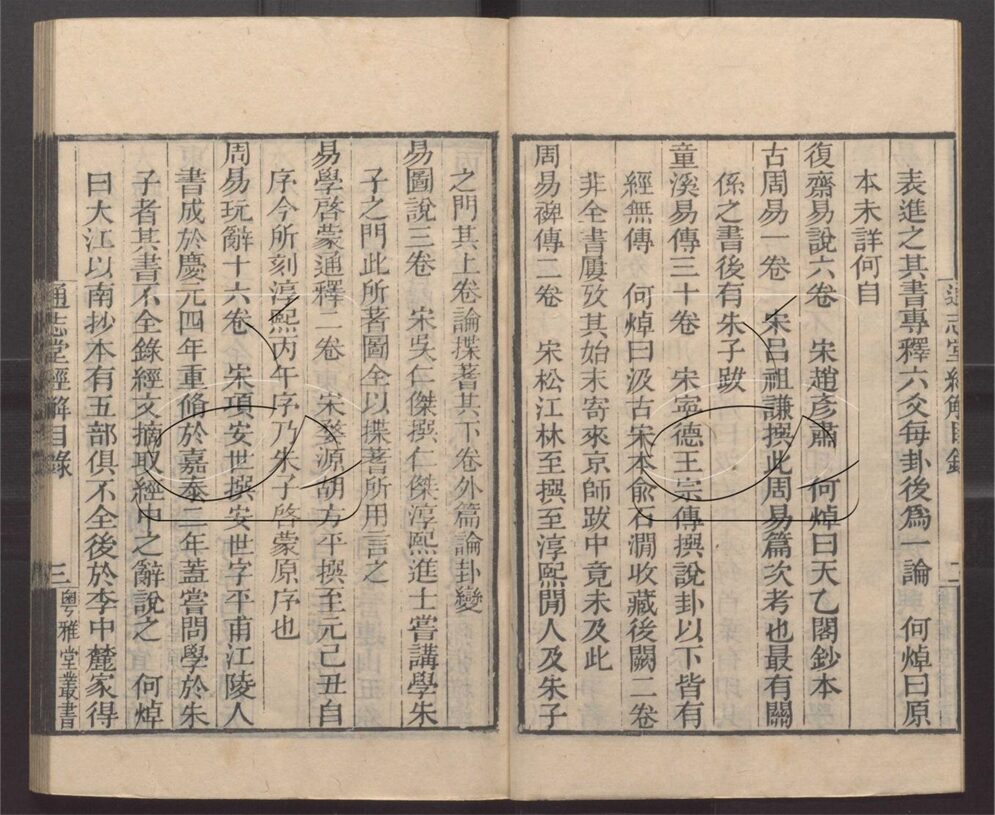 表進之其書專釋六爻每卦後爲一論 何焯曰原
本未詳何自
復齋易說六卷 宋趙彥肅 何焯曰天乙閣鈔本
古周易一卷 宋呂祖謙撰此周易篇次考也最有關
係之書後有朱子跋
童溪易傳三十卷 宋寧德王宗傳撰說卦以下皆有
經無傳 何焯曰汲古宋本兪石澗收藏後闕二卷
非全書屢攷其始末寄來京師跋中竟未及此
周易裨傳二卷 宋松江林至撰至淳熙閒人及朱子
通志堂經解目錄 二
之門其上卷論揲蓍其下卷外篇論卦變
易圖說三卷 宋吳仁傑撰仁傑淳熙進士嘗講學朱
子之門此所著圖全以揲蓍所用言之
易學啓蒙通釋二卷 宋婺源胡方平撰至元己丑自
序今所刻淳熙丙午序乃朱子啓蒙原序也
周易玩辭十六卷 宋項安世撰安世字平甫江陵人
書成於慶元四年重脩於嘉泰二年蓋嘗問學於朱
子者其書不全錄經文摘取經中之辭說之 何焯
曰大江以南抄本有五部俱不全後於李中麓家得
通志堂經解目錄 三 粵雅堂叢書